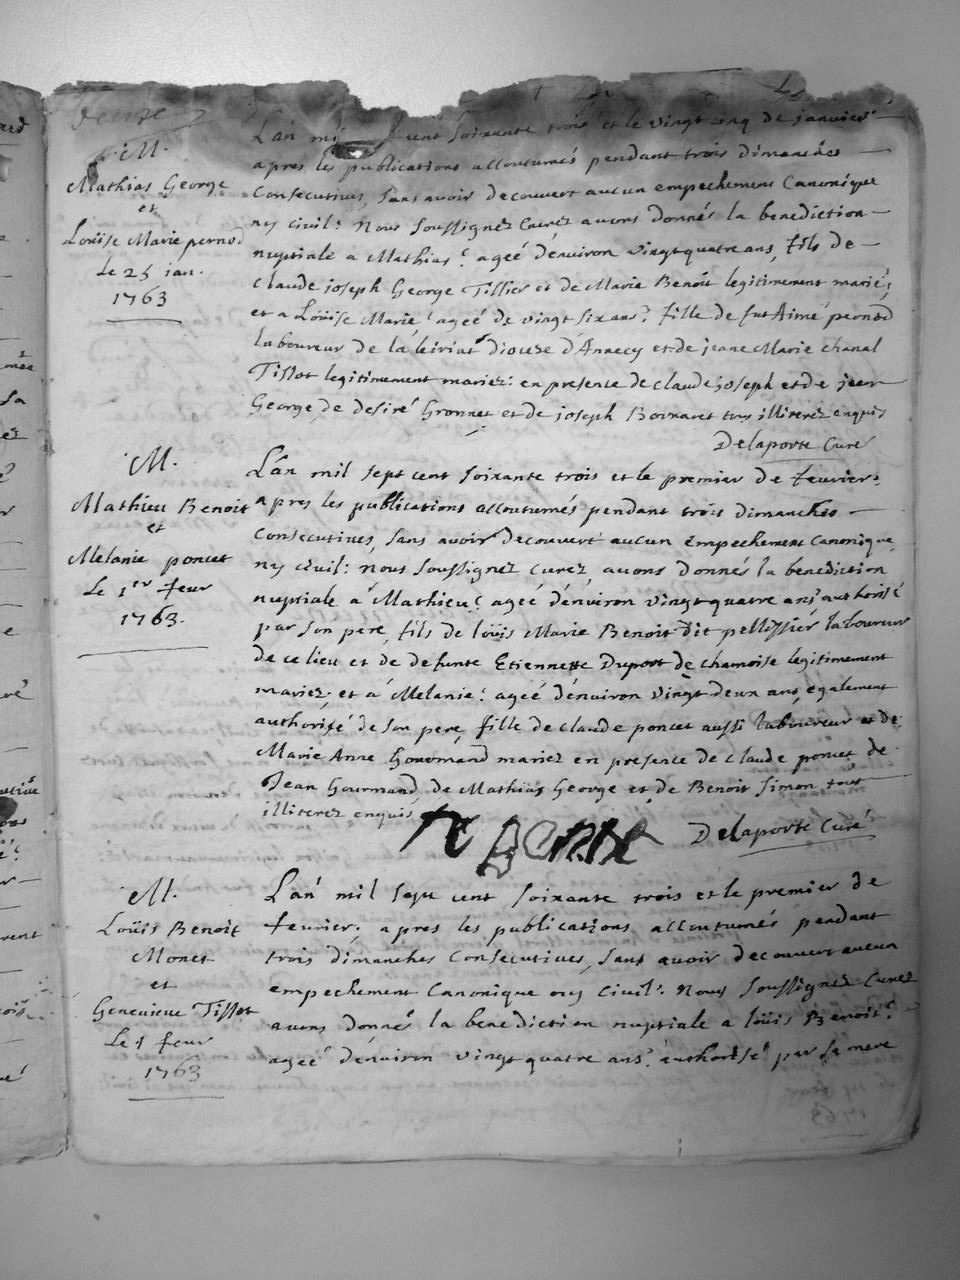 M.
Mathias George
et
Loüise Marie pernod
Le 25 jan.
1763
L'an mil cent soixante trois et le vingt cinq de janvier
apres les publications accoutumés pendant trois dimanches
Consecutives, sans avoir decouvert aucun empechement Canonique
ny civil: Nous soussignez Curez avons donnés la benediction
nuptiale a Mathias: ageé d'environ vingt quatre ans, fils de
Claude joseph George Tissier et de Marie Benoit legitimement mariés;
et a Loüise Marie: ageé de vingt six ans: fille de fut Aimé pernod
laboureur de la diocese d'Annecy et de jeane Marie chanal
Tissot legitimement mariez: en presence de claude joseph et de jean
George, de desiré Gronnet et de joseph tous illiterez enquis
Delaporte Curé
M.
Mathieu Benoit
et
Melanie poncet
Le 1er feur
1763.
L'an mil sept cent soixante trois et le premier de fevrier:
apres les publications accoutumés pendant trois dimanches
Consecutives, sans avoir decouvert aucun Empechement Canonique,
ny civil: nous soussignez Curez, avons donnés la benediction
nuptiale a Mathieu: ageé d'environ vingt quatre ans authorisé
par son pere, fils de loüis Marie Benoit dit pellissier laboureur
de ce lieu et de defunte Etiennette Duport de chamoise legitimement
mariez. et a Melanie: ageé d'environ vingt deux ans, egalement
authorisé de son pere, fille de claude poncet aussi laboureur et de
Marie Anne Gourmand mariez en presence de Claude poncet de
Jean Gourmand, de Mathias George et de Benoit Simon tous
illiterez enquis
Delaporte Curé
M.
Loüis Benoit
Monet
et
Genevieve Tissot
Le 1 feur
1763
L'an mil sept cent soixante trois et le premier de
fevrier: apres les publications accoutumés pendant
trois dimanches Consecutives, sans avoir decouvert aucun
empechement Canonique ny Civil: Nous soussignez Curez
avons donnés la benediction nuptiale a loüis Benoit:
ageé d'environ vingt quatre ans: authorisé par sa mere